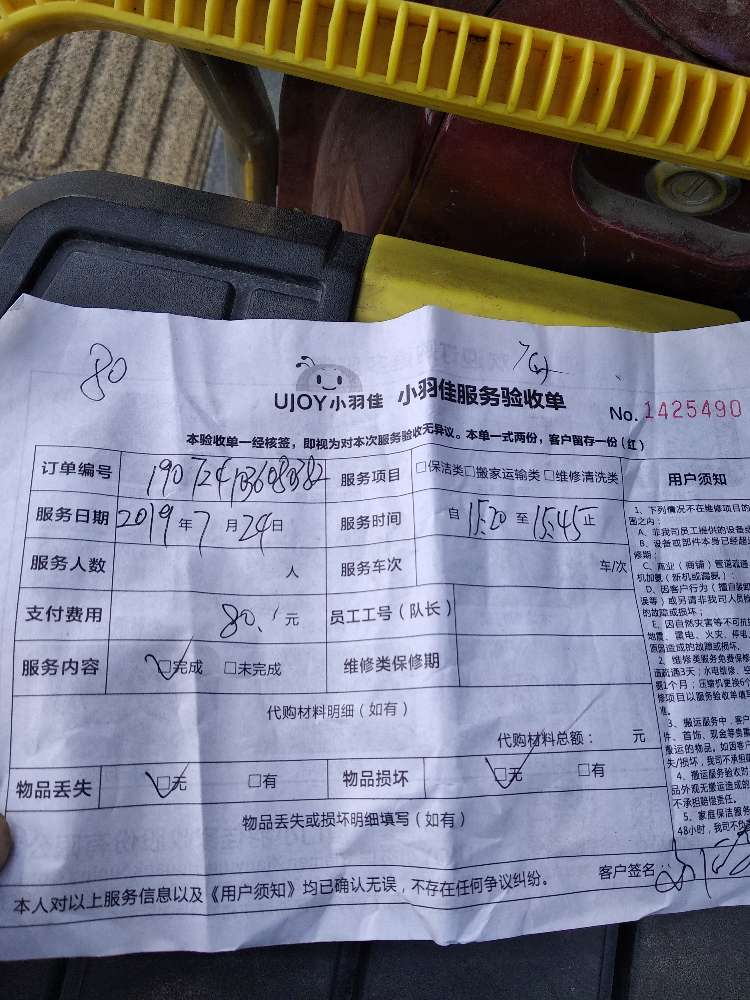 80
UJOY小羽佳 小羽佳服务验收单
No. 1425490
本验收单一经核签，即视为对本次服务验收无异议。本单一式两份，客户留存一份（红）
订单编号 服务项目 □保洁类□搬家运输类□维修清洗类 用户须知
服务日期 2019年7月24日 服务时间 自15:20至15:45止
服务人数 人 服务车次 车/次
支付费用 80. 元 员工工号（队长）
服务内容 □完成 □未完成 维修类保修期
代购材料明细（如有）
代购材料总额： 元
物品丢失 □无 □有 物品损坏 □无 □有
物品丢失或损坏明细填写（如有）
本人对以上服务信息以及《用户须知》均已确认无误，不存在任何争议纠纷。 客户签名：
1、下列情况不在维修项目的
A、非我司员工提供的设备
B、设备或部件本身已经超
C、商业（商铺）管道疏通
机加氨（新机或漏氨）；
D、因客户行为（擅自装卸
误等）或另请非我司人员
的故障或损坏；
E、因自然灾害等不可抗
地震、雷电、火灾、停电
原因造成的故障或损坏。
2、维修类服务免费保修
道疏通3天；水电维修、空
1个月；压缩机更换6个
修项目以服务验收单填写
准。
3、搬运服务中，客户
件、首饰、现金等贵重
搬运的物品。如因客户
失/损坏，我司不承担
4、搬运服务验收时
品外观无搬运造成的
不承担赔偿责任。
5、家庭保洁服务
48小时，我司不负责